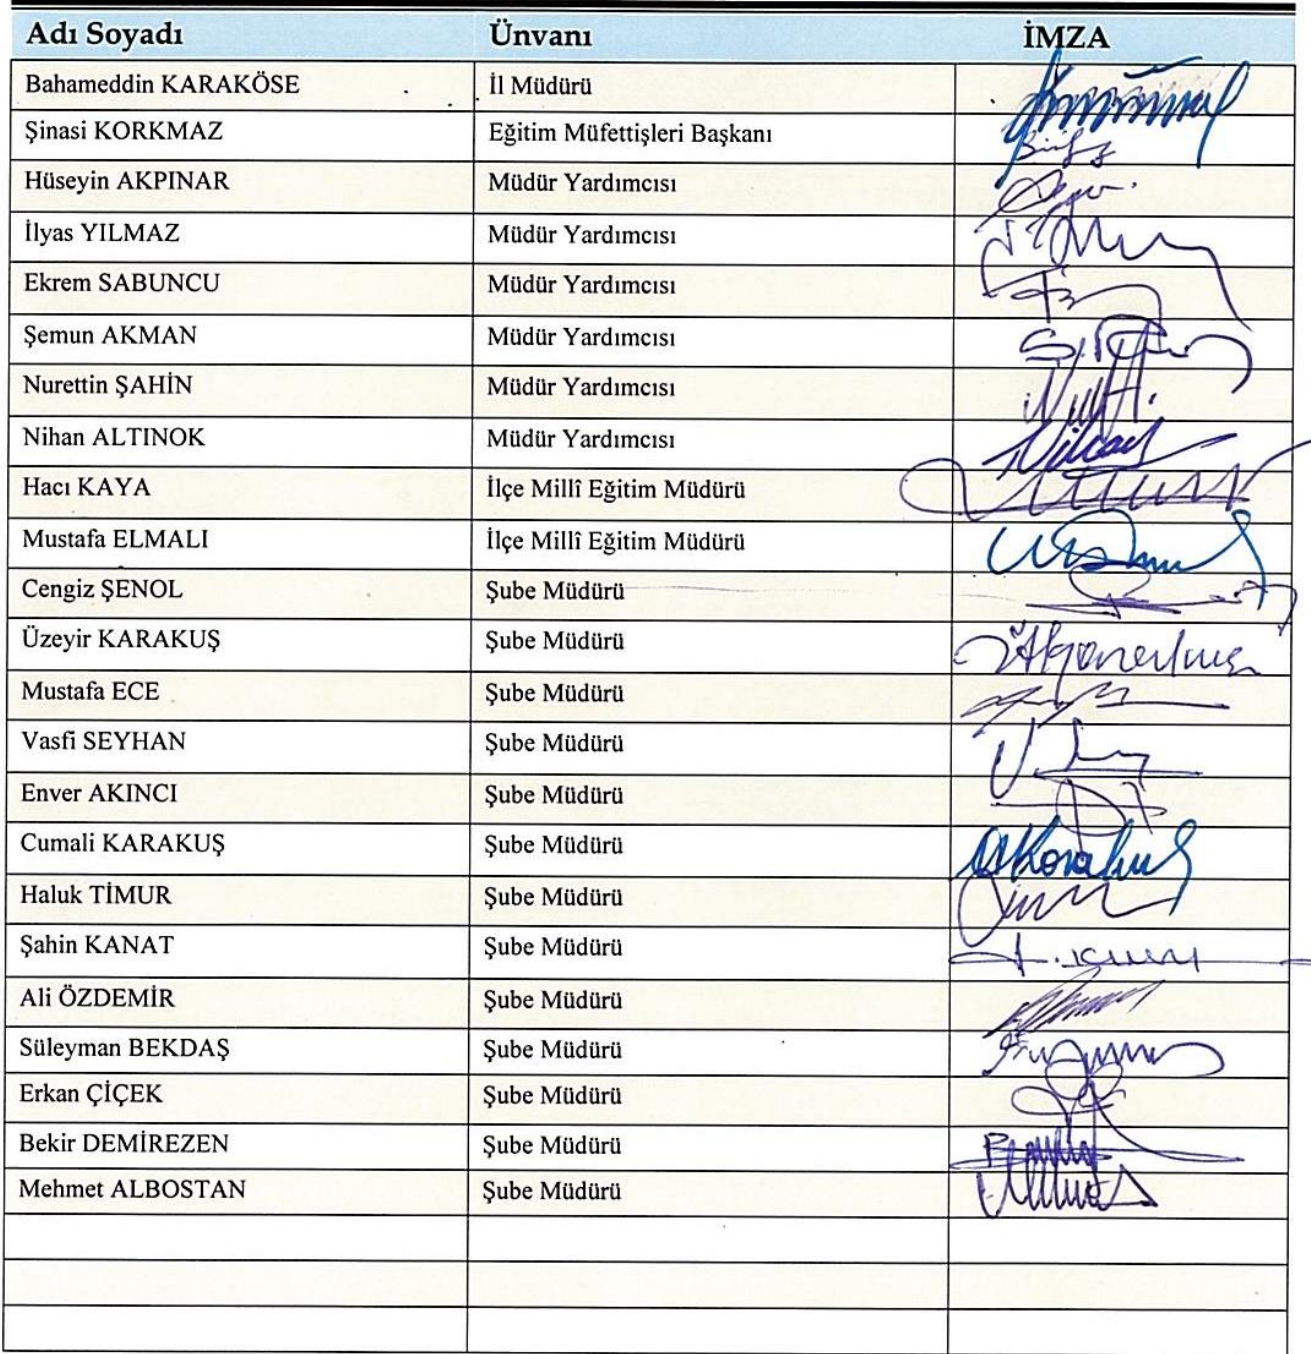 Adı Soyadı Ünvanı İMZA
Bahameddin KARAKÖSE İl Müdürü
Şinasi KORKMAZ Eğitim Müfettişleri Başkanı
Hüseyin AKPINAR Müdür Yardımcısı
İlyas YILMAZ Müdür Yardımcısı
Ekrem SABUNCU Müdür Yardımcısı
Şemun AKMAN Müdür Yardımcısı
Nurettin ŞAHİN Müdür Yardımcısı
Nihan ALTINOK Müdür Yardımcısı
Hacı KAYA İlçe Millî Eğitim Müdürü
Mustafa ELMALI İlçe Millî Eğitim Müdürü
Cengiz ŞENOL Şube Müdürü
Üzeyir KARAKUŞ Şube Müdürü
Mustafa ECE Şube Müdürü
Vasfi SEYHAN Şube Müdürü
Enver AKINCI Şube Müdürü
Cumali KARAKUŞ Şube Müdürü
Haluk TİMUR Şube Müdürü
Şahin KANAT Şube Müdürü
Ali ÖZDEMİR Şube Müdürü
Süleyman BEKDAŞ Şube Müdürü
Erkan ÇİÇEK Şube Müdürü
Bekir DEMİREZEN Şube Müdürü
Mehmet ALBOSTAN Şube Müdürü